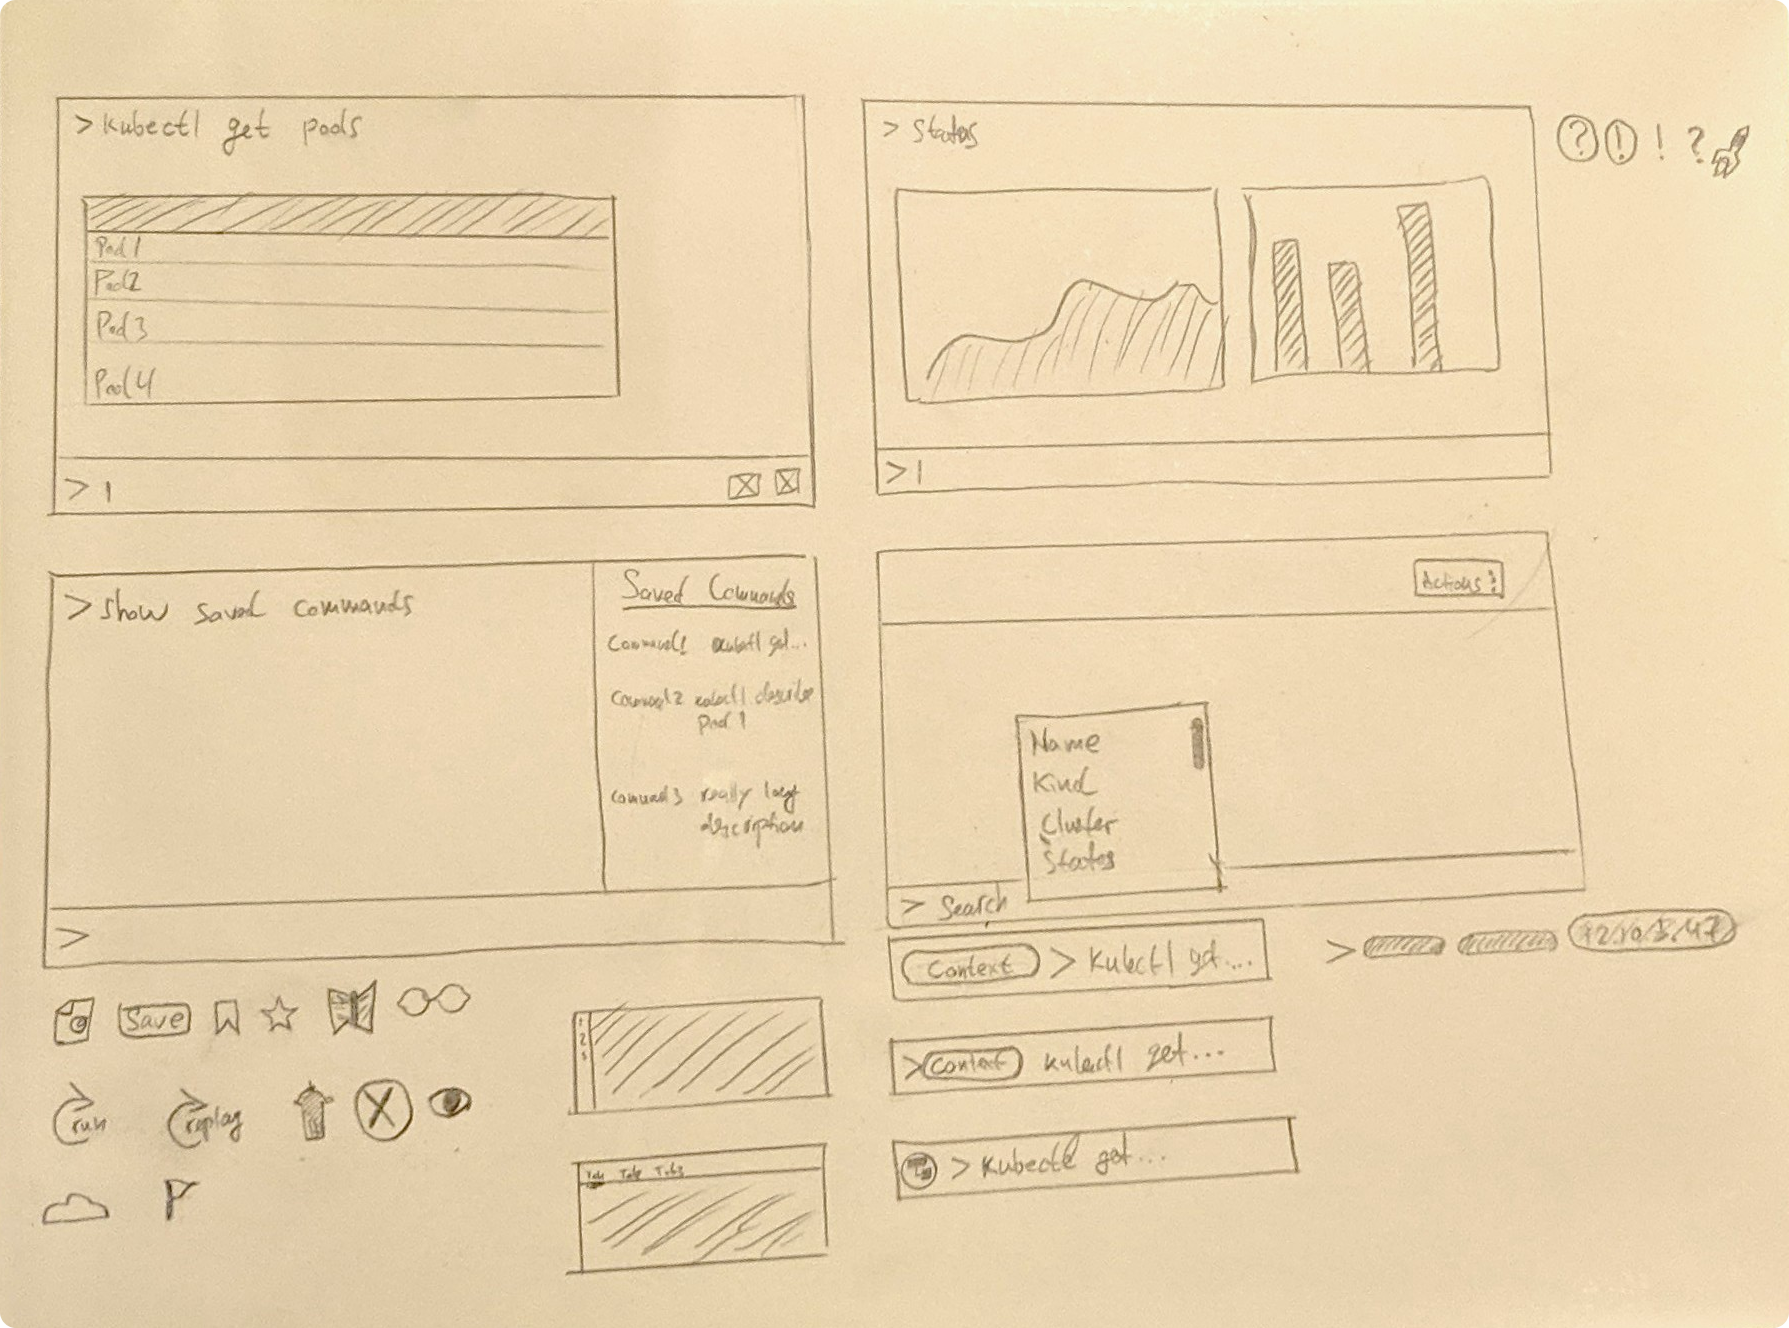 > Kubectl get pods
Pod 1
Pod2
Pod 3
Pod 4
> |
> Status
? ! ! ?
> |
> Show saved commands
Saved Commands
Command1 kubectl get...
Command2 kubectl describe
Pod 1
Command3 really long
description
>
Actions
Name
Kind
Cluster
States
> Search
Context > Kubectl get....
>
> Context kubectl get...
> Kubectl get...
Save
run
replay
X
1
2
3
Tab Tab Tab3